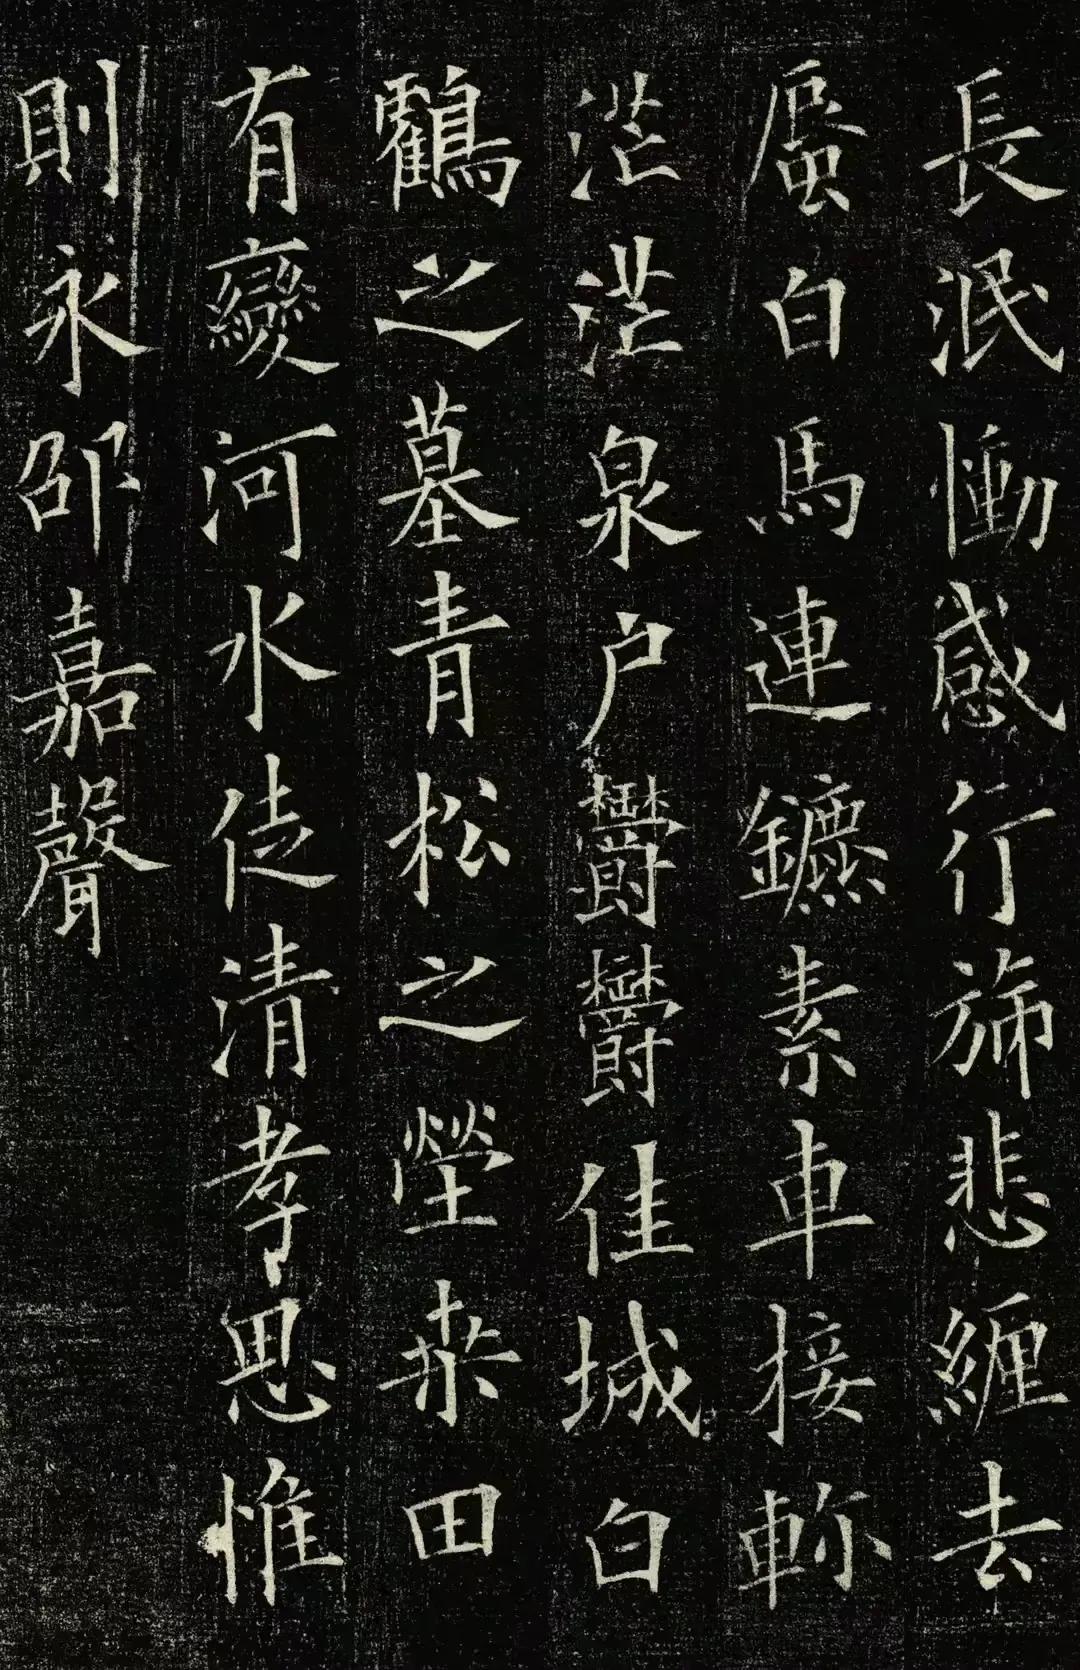 長泯慟感行旆悲纏去
蜃白馬連鑣素車接軫
茫茫泉戶欝欝佳城白
鶴之墓青松之塋桒田
有變河水徒清孝思惟
則永邵嘉聲